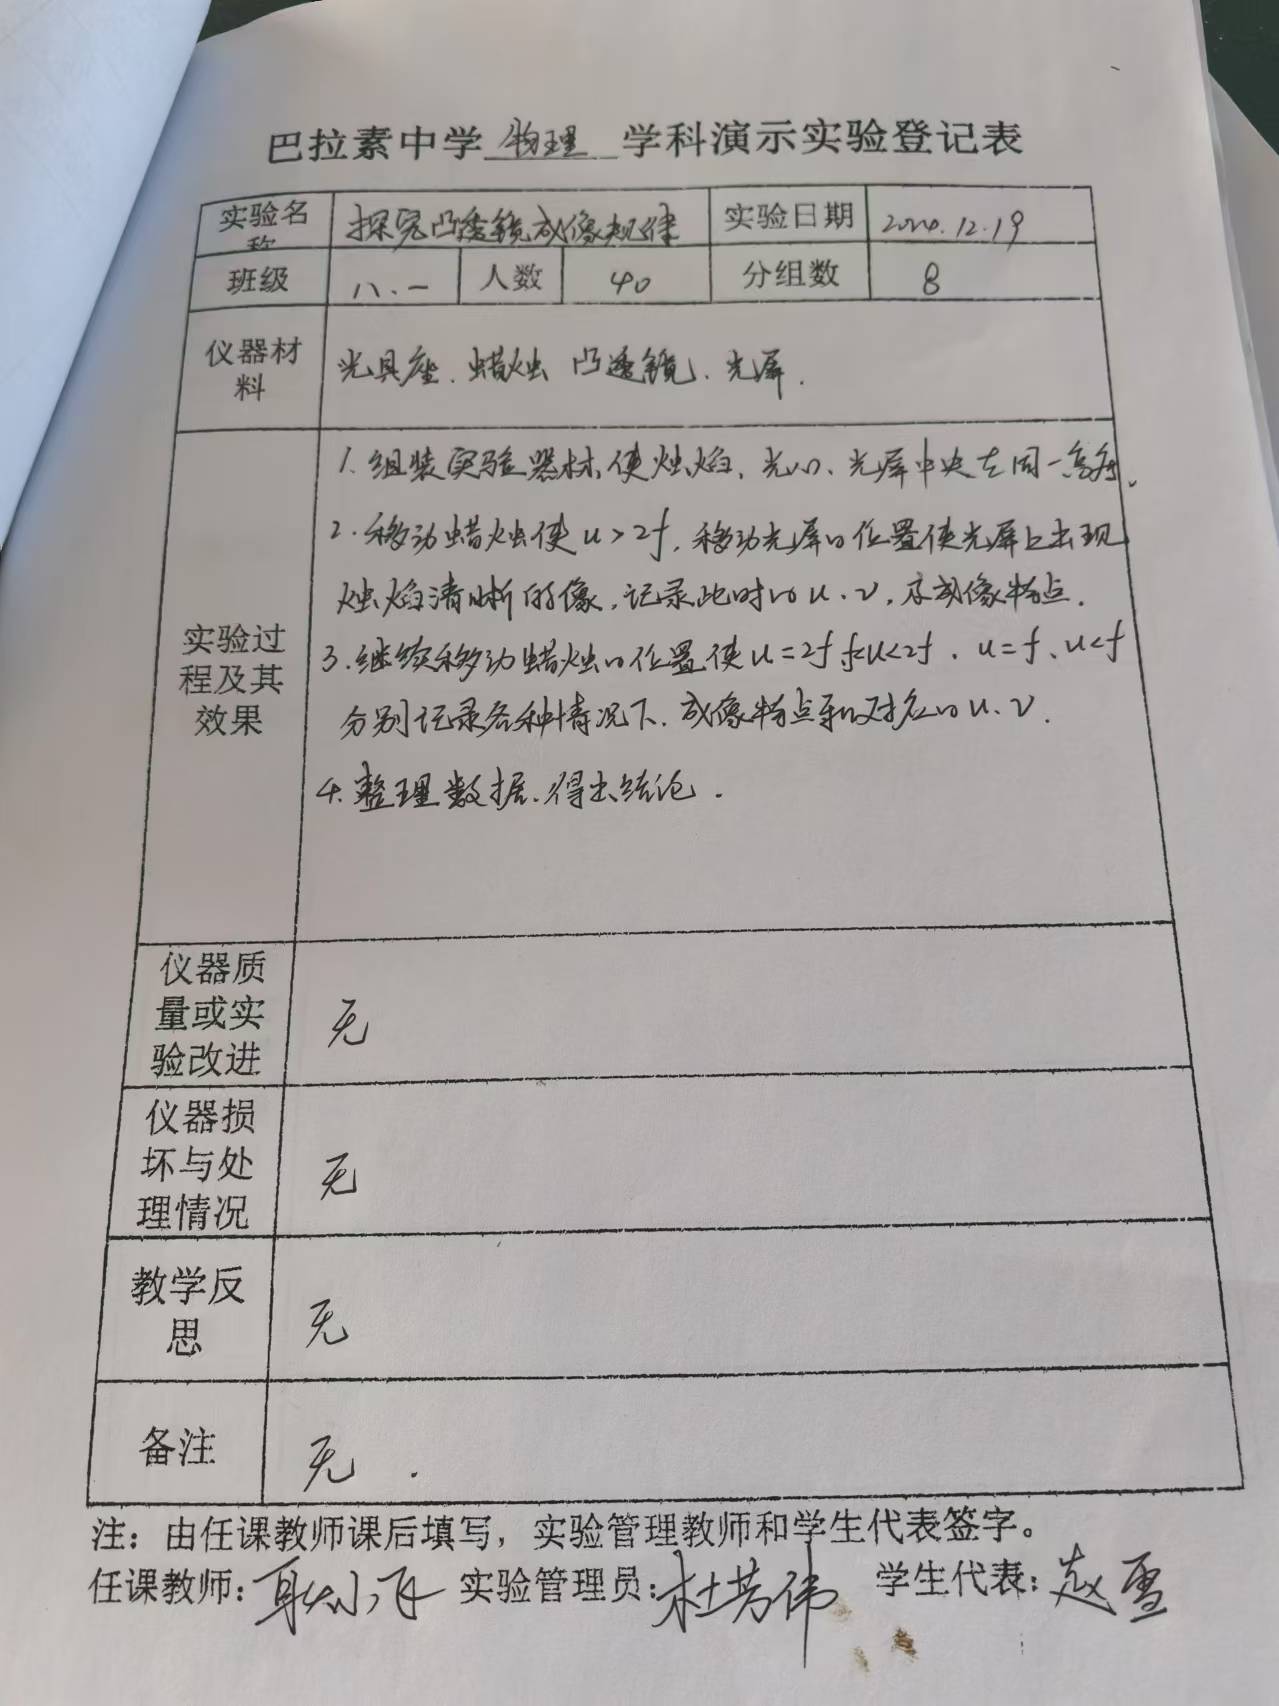 巴拉素中学 物理 学科演示实验登记表
实验名称 探究凸透镜成像规律 实验日期 2020.12.19
班级 八.一 人数 40 分组数 8
仪器材料 光具座.蜡烛 凸透镜.光屏.
实验过程及其效果
1.组装实验器材,使烛焰,光心、光屏中央在同一高度.
2.移动蜡烛使u>2f,移动光屏的位置使光屏上出现
烛焰清晰的像,记录此时的u.v,及成像特点.
3.继续移动蜡烛的位置使u=2f f<u<2f.u=f、u<f
分别记录各种情况下.成像特点和对应的u.v.
4.整理数据.得出结论.
仪器质量或实验改进 无
仪器损坏与处理情况 无
教学反思 无
备注 无.
注：由任课教师课后填写，实验管理教师和学生代表签字。
任课教师: 耿小飞 实验管理员: 杜芳伟 学生代表: 赵雪